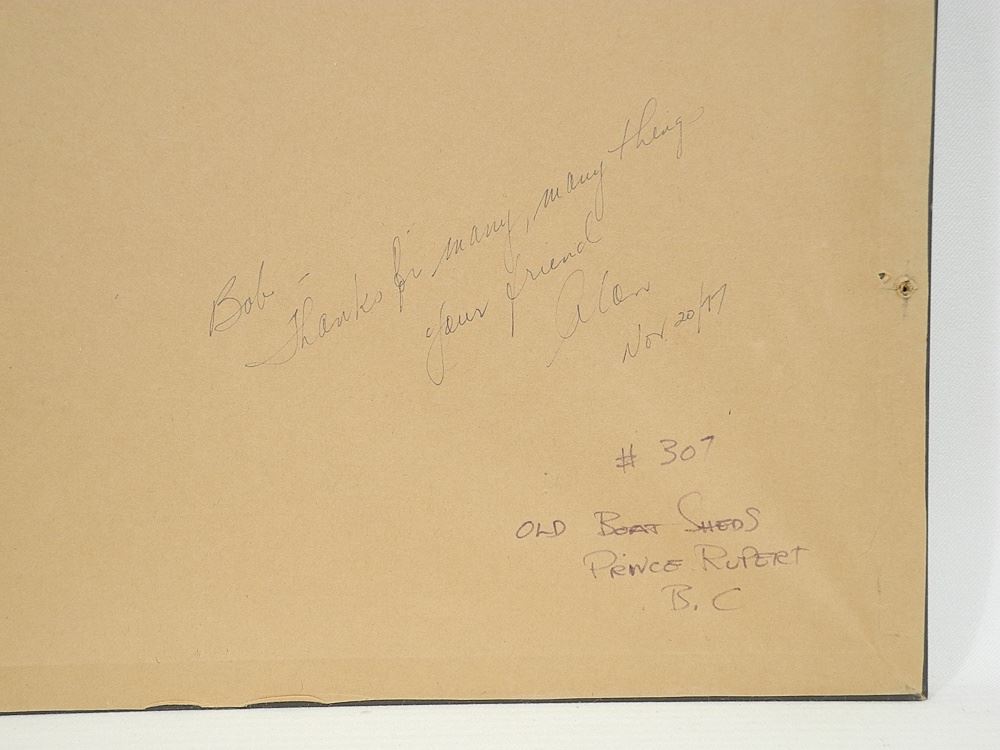 Bob -
Thanks for many, many things
your friend
Alan
Nov. 20/77
# 307
OLD BOAT SHEDS
PRINCE RUPERT
B.C